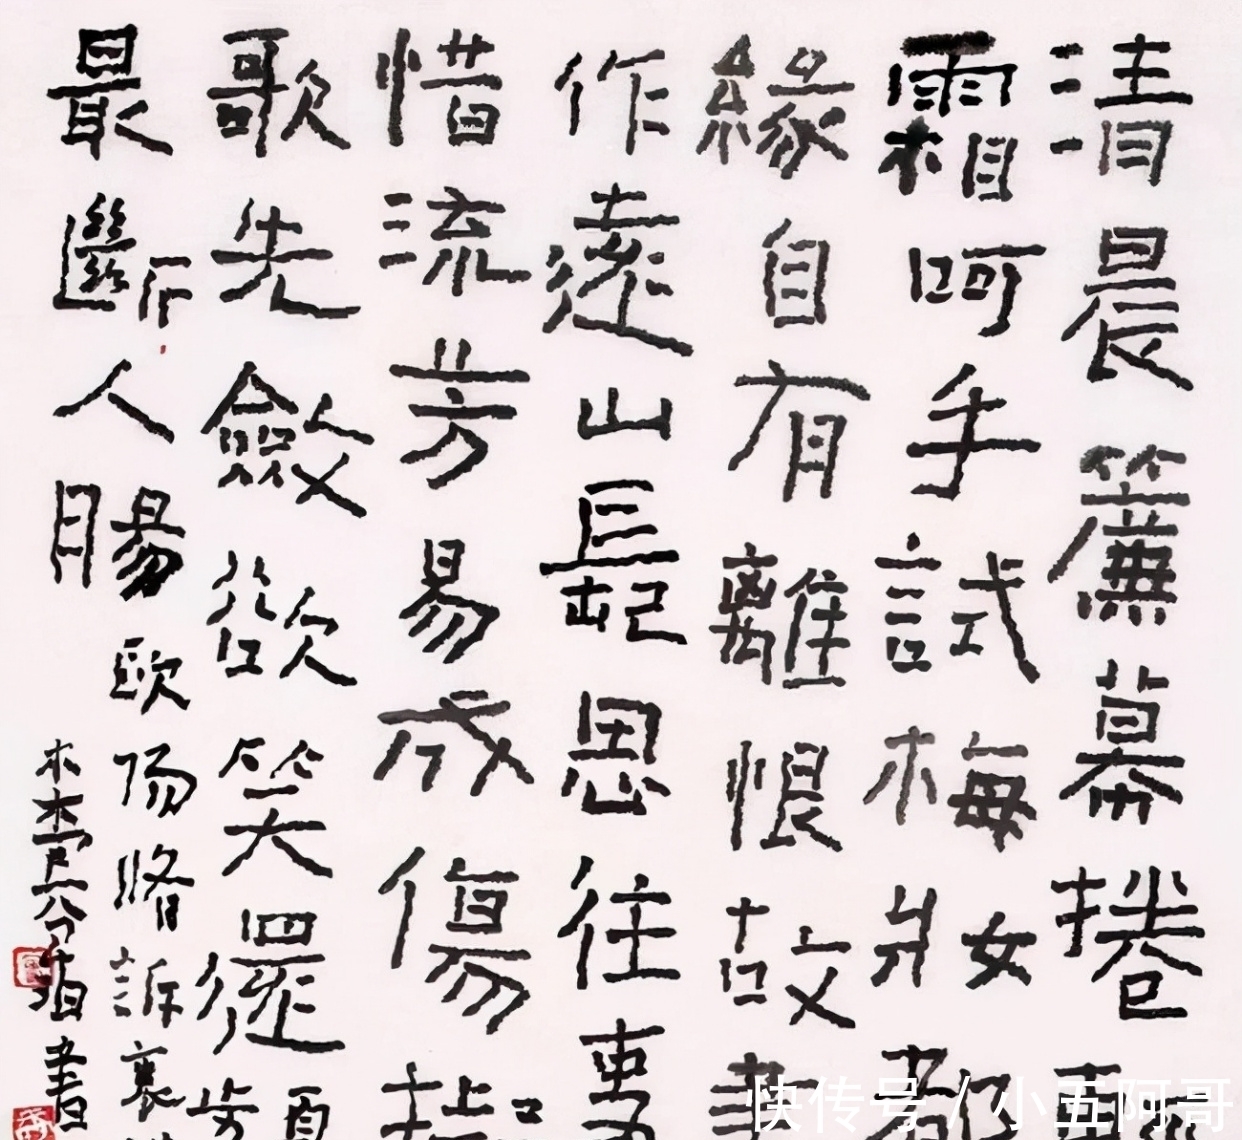 清晨簾幕捲輕
霜呵手試梅妝都
緣自有離恨故畫
作遠山長思往事
惜流芳易成傷擬
歌先斂欲笑還顰
最斷人腸 歐陽脩訴衷
書
快传号 / 小五阿哥